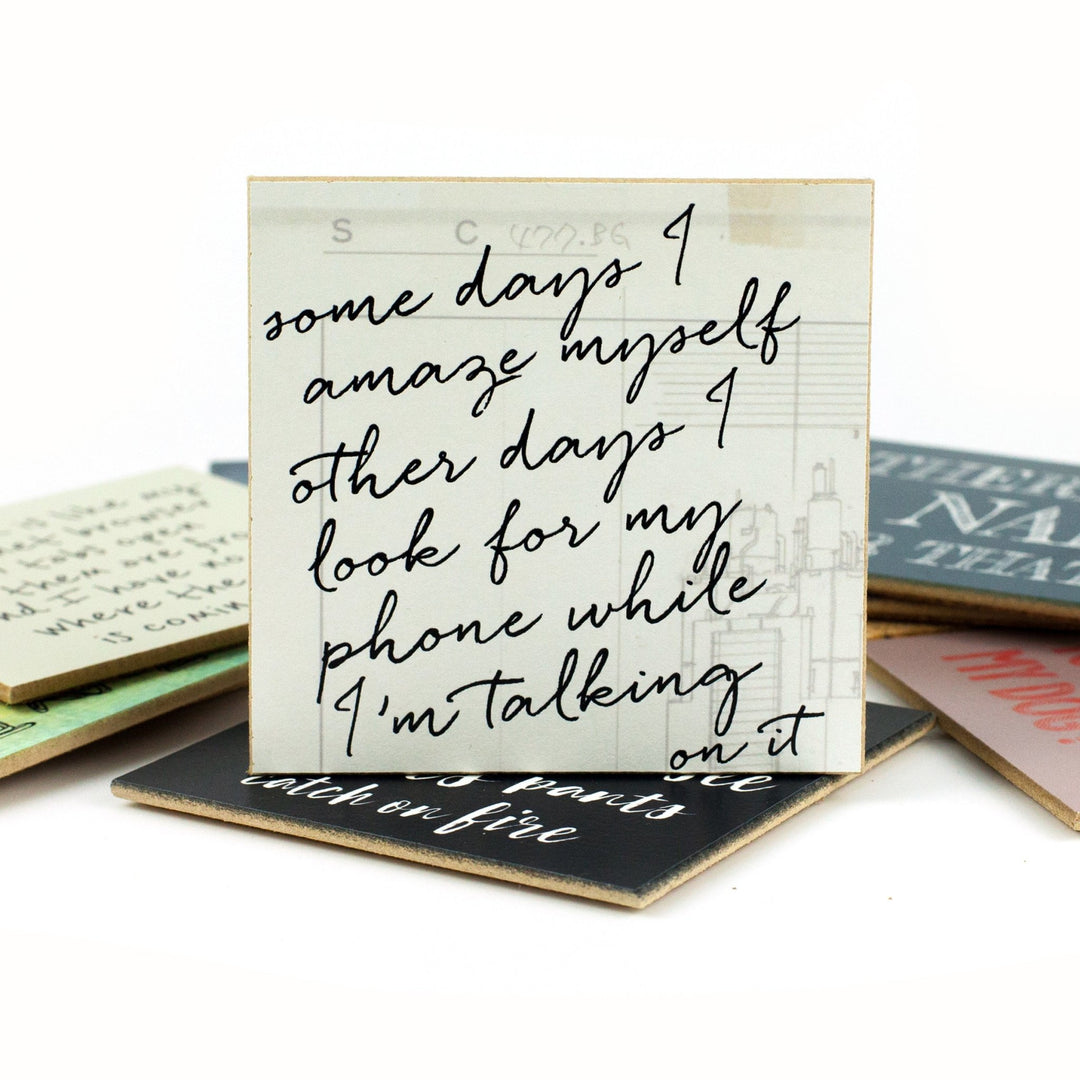 S C 477.86
some days I
amaze myself
other days I
look for my
phone while
I'm talking
on it
is like my
browser
tabs open
them are fro
nd I have no
where the
is comin
pants
catch on fire
NA
THAT
MY DOG?